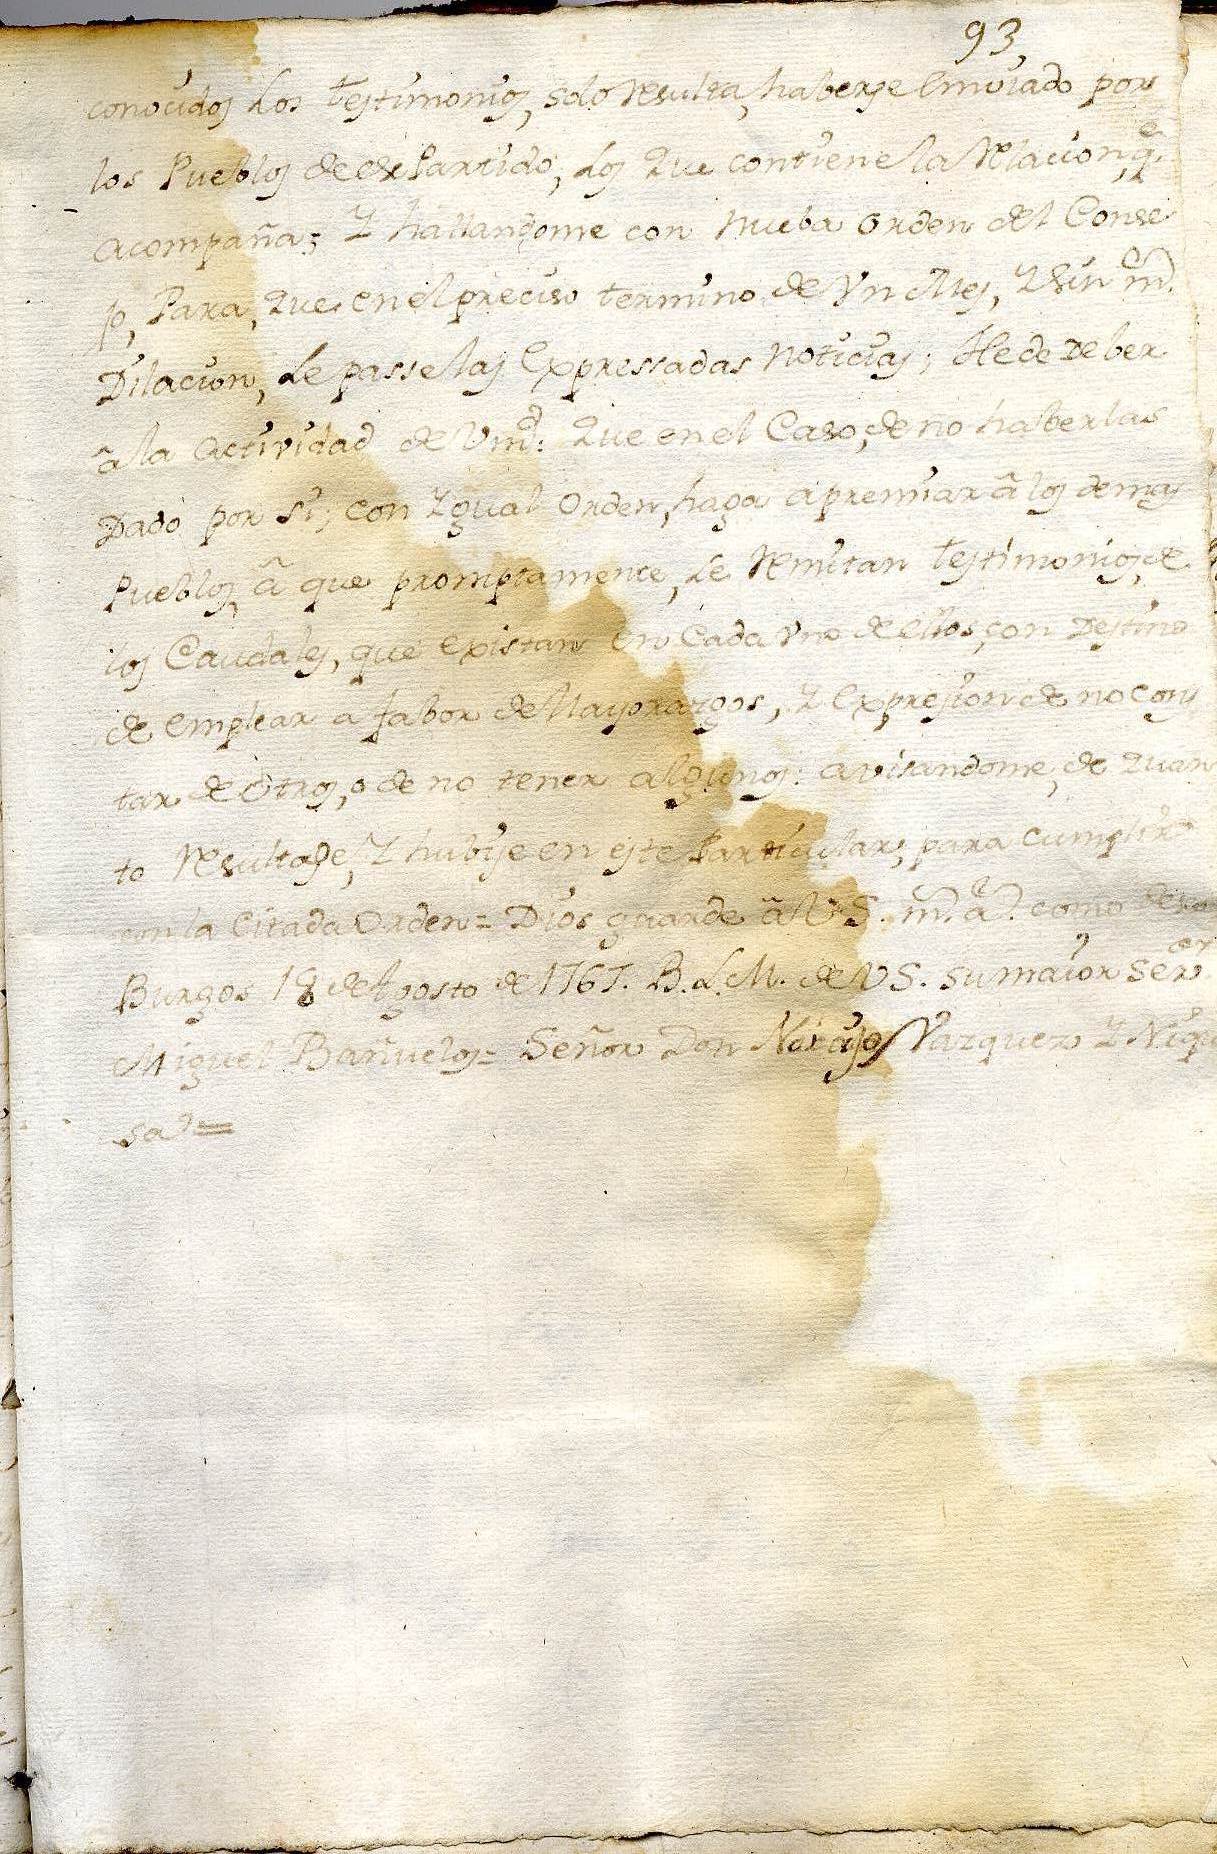 93
conocidos los testimonios, solo resulta, haberse embiado por
los Pueblos de ese Partido, los que contiene la relacion, q.e
acompaña; Y hallandome con nueba orden del Conse
jo, Para, que en el preciso termino de Vn Mes, Y sin m.r
Dilacion, le passe las Expressadas noticias; He de Deber
â la actividad de Vmd: que en el Caso, de no haberlas
Dado por si; con Ygual Orden, haga apremiar â los demas
Pueblos, â que promptamente, le remitan testimonios, de
los Caudales, que existan en Cada Vno de ellos, con Destino
de emplear a fabor de Mayorazgos, Y expresion de no cons
tar de otros, o de no tener algunos: avisandome, de quan
to resultase, Y hubiese en este Particular, para cumplir
con la Citada Orden = Dios guarde â V.S. m.s a.s como deseo
Burgos 18 de Agosto de 1767. B. L. M. de VS. su maior Ser.or
Miguel Bañuelos = Señor Don Vazquez Y Viqu
sa =